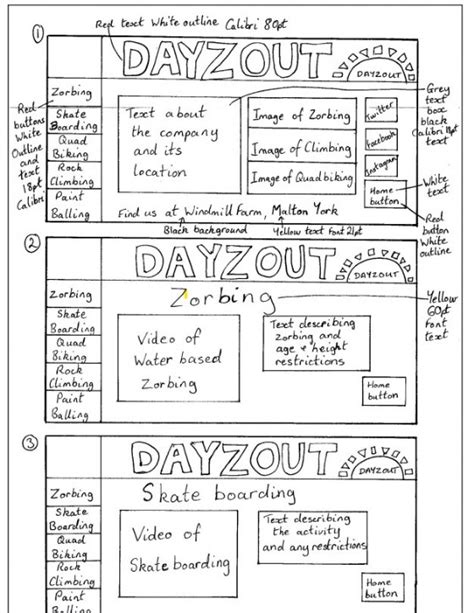 Red text White outline Calibri 80pt
1
DAYZOUT
DAYZOUT
Zorbing
Skate
Boarding
Quad
Biking
Rock
Climbing
Paint
Balling
Red
buttons
White
Outline
and
text
18pt
Calibri
Text about
the company
and its
location
Image of Zorbing
Image of Climbing
Image of Quadbiking
Twitter
Facebook
Instagram
Home
button
Grey
text
box
black
Calibri 18pt
text
White
text
Red
button
White
outline
Find us at Windmill Farm, Malton York
Black background
Yellow text font 21pt
2
DAYZOUT
DAYZOUT
Zorbing
Skate
Boarding
Quad
Biking
Rock
Climbing
Paint
Balling
Zorbing
Yellow
60pt
Font
text
Video of
Water based
Zorbing
Text describing
Zorbing and
age & height
restrictions
Home
button
3
DAYZOUT
DAYZOUT
Zorbing
Skate
Boarding
Quad
Biking
Rock
Climbing
Paint
Balling
Skate boarding
Video of
Skateboarding
Text describing
the activity
and any restrictions
Home
button